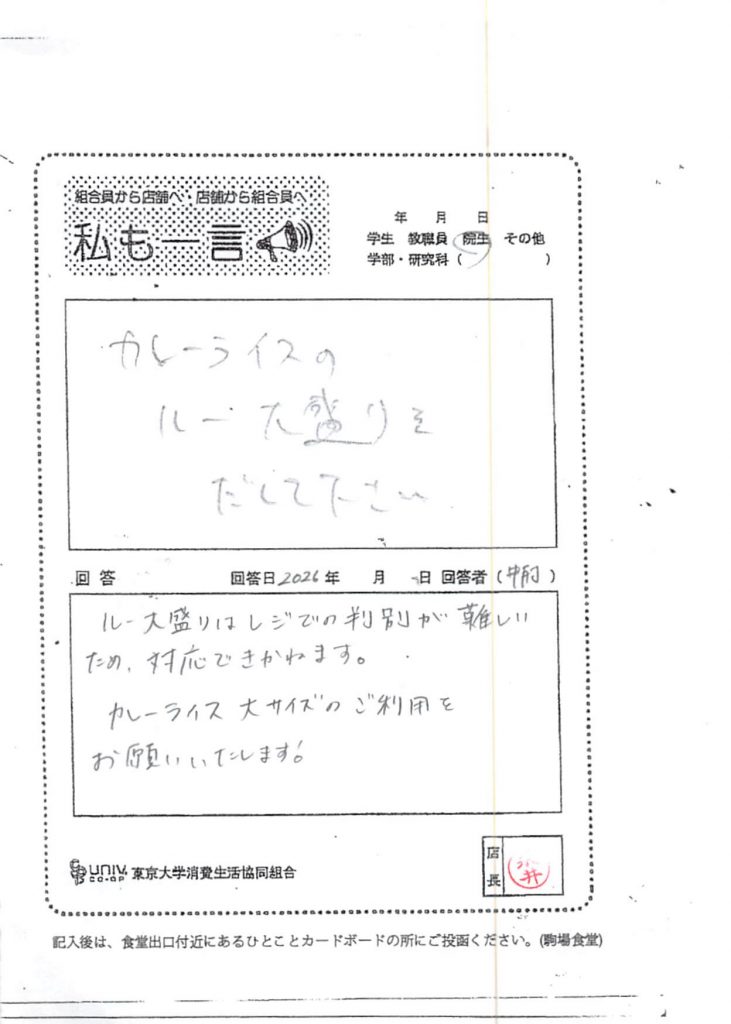 組合員から店舗へ・店舗から組合員へ
私も一言
年 月 日
学生 教職員 院生 その他
学部・研究科 ( )
カレーライスの
ルー大盛りを
だして下さい
回答 回答日2026年 月 日 回答者 ( )
ルー大盛りはレジでの判別が難しい
ため、対応できかねます。
カレーライス大サイズのご利用を
お願いいたします。
UNIV. CO-OP 東京大学消費生活協同組合
店長
井
記入後は、食堂出口付近にあるひとことカードボードの所にご投函ください。(駒場食堂)